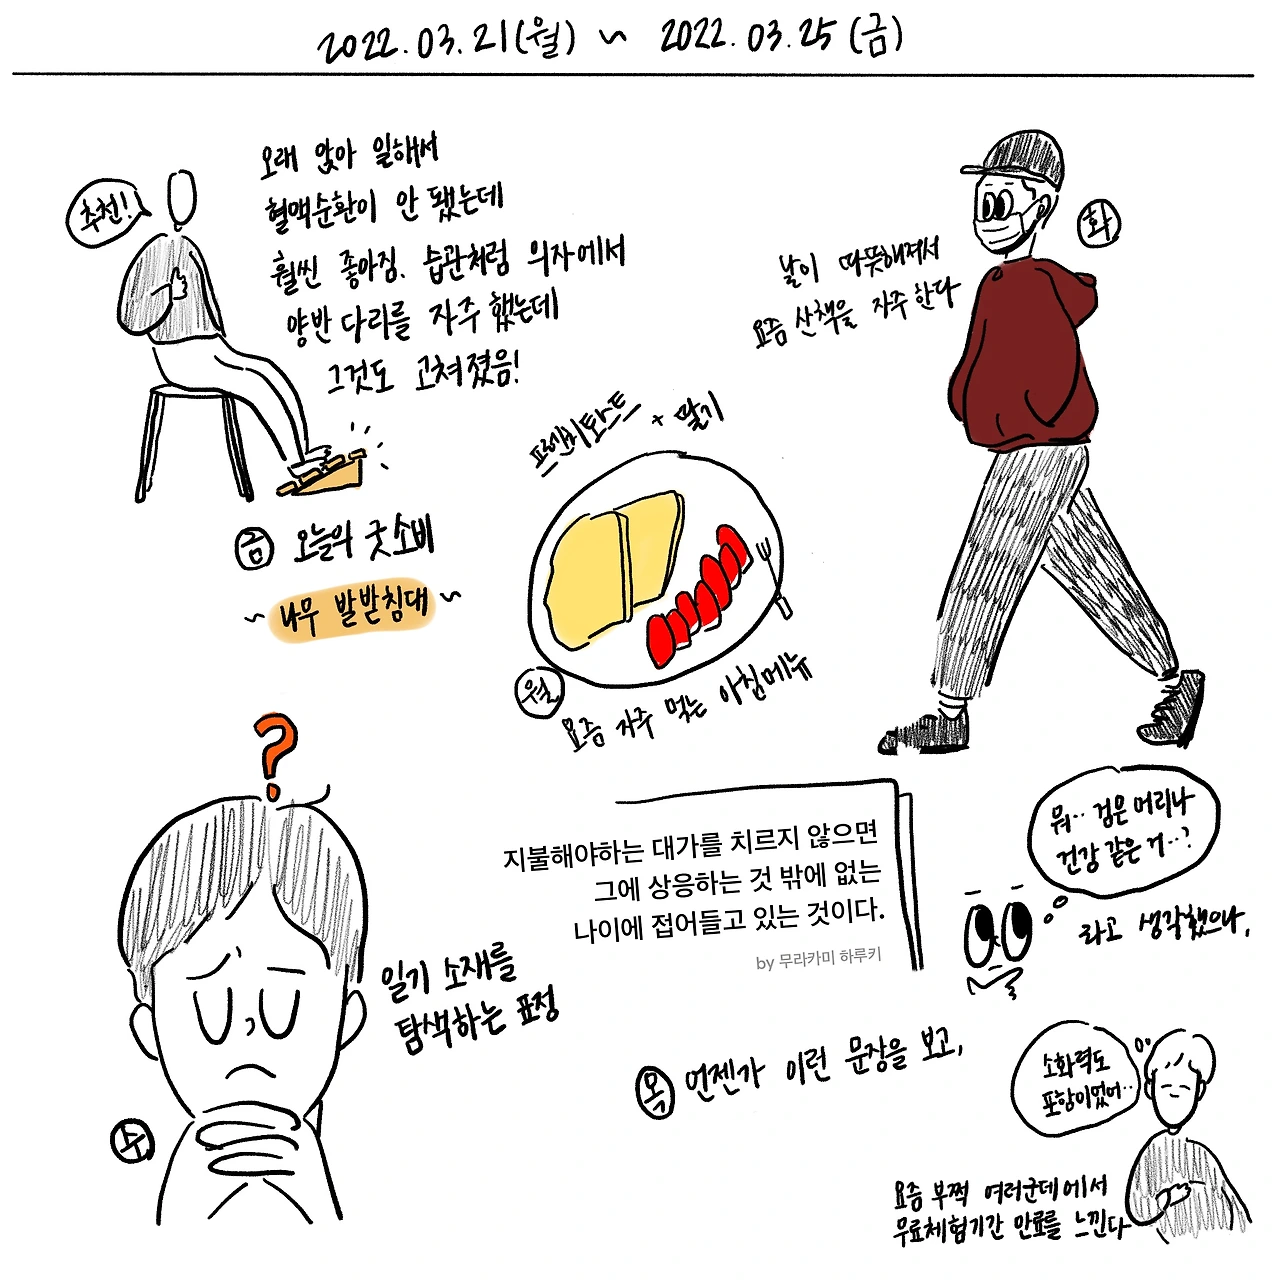 2022.03.21(월) ~ 2022.03.25(금)
추천!
오래 앉아 일해서
혈액순환이 안 됐는데
훨씬 좋아짐. 습관처럼 의자에서
양반다리를 자주 했는데
그것도 고쳐졌음!
금 오늘의 굿소비
~ 나무 발받침대 ~
프렌치토스트 + 딸기
월
요즘 자주 먹는 아침메뉴
화
날이 따뜻해져서
요즘 산책을 자주 한다
?
일기 소재를
탐색하는 표정
수
지불해야하는 대가를 치르지 않으면
그에 상응하는 것 밖에 없는
나이에 접어들고 있는 것이다.
by 무라카미 하루키
목 언젠가 이런 문장을 보고,
뭐.. 검은 머리나
건강 같은 거..?
라고 생각했으나,
소화력도
포함이었어..
요즘 부쩍 여러군데에서
무료체험기간 만료를 느낀다